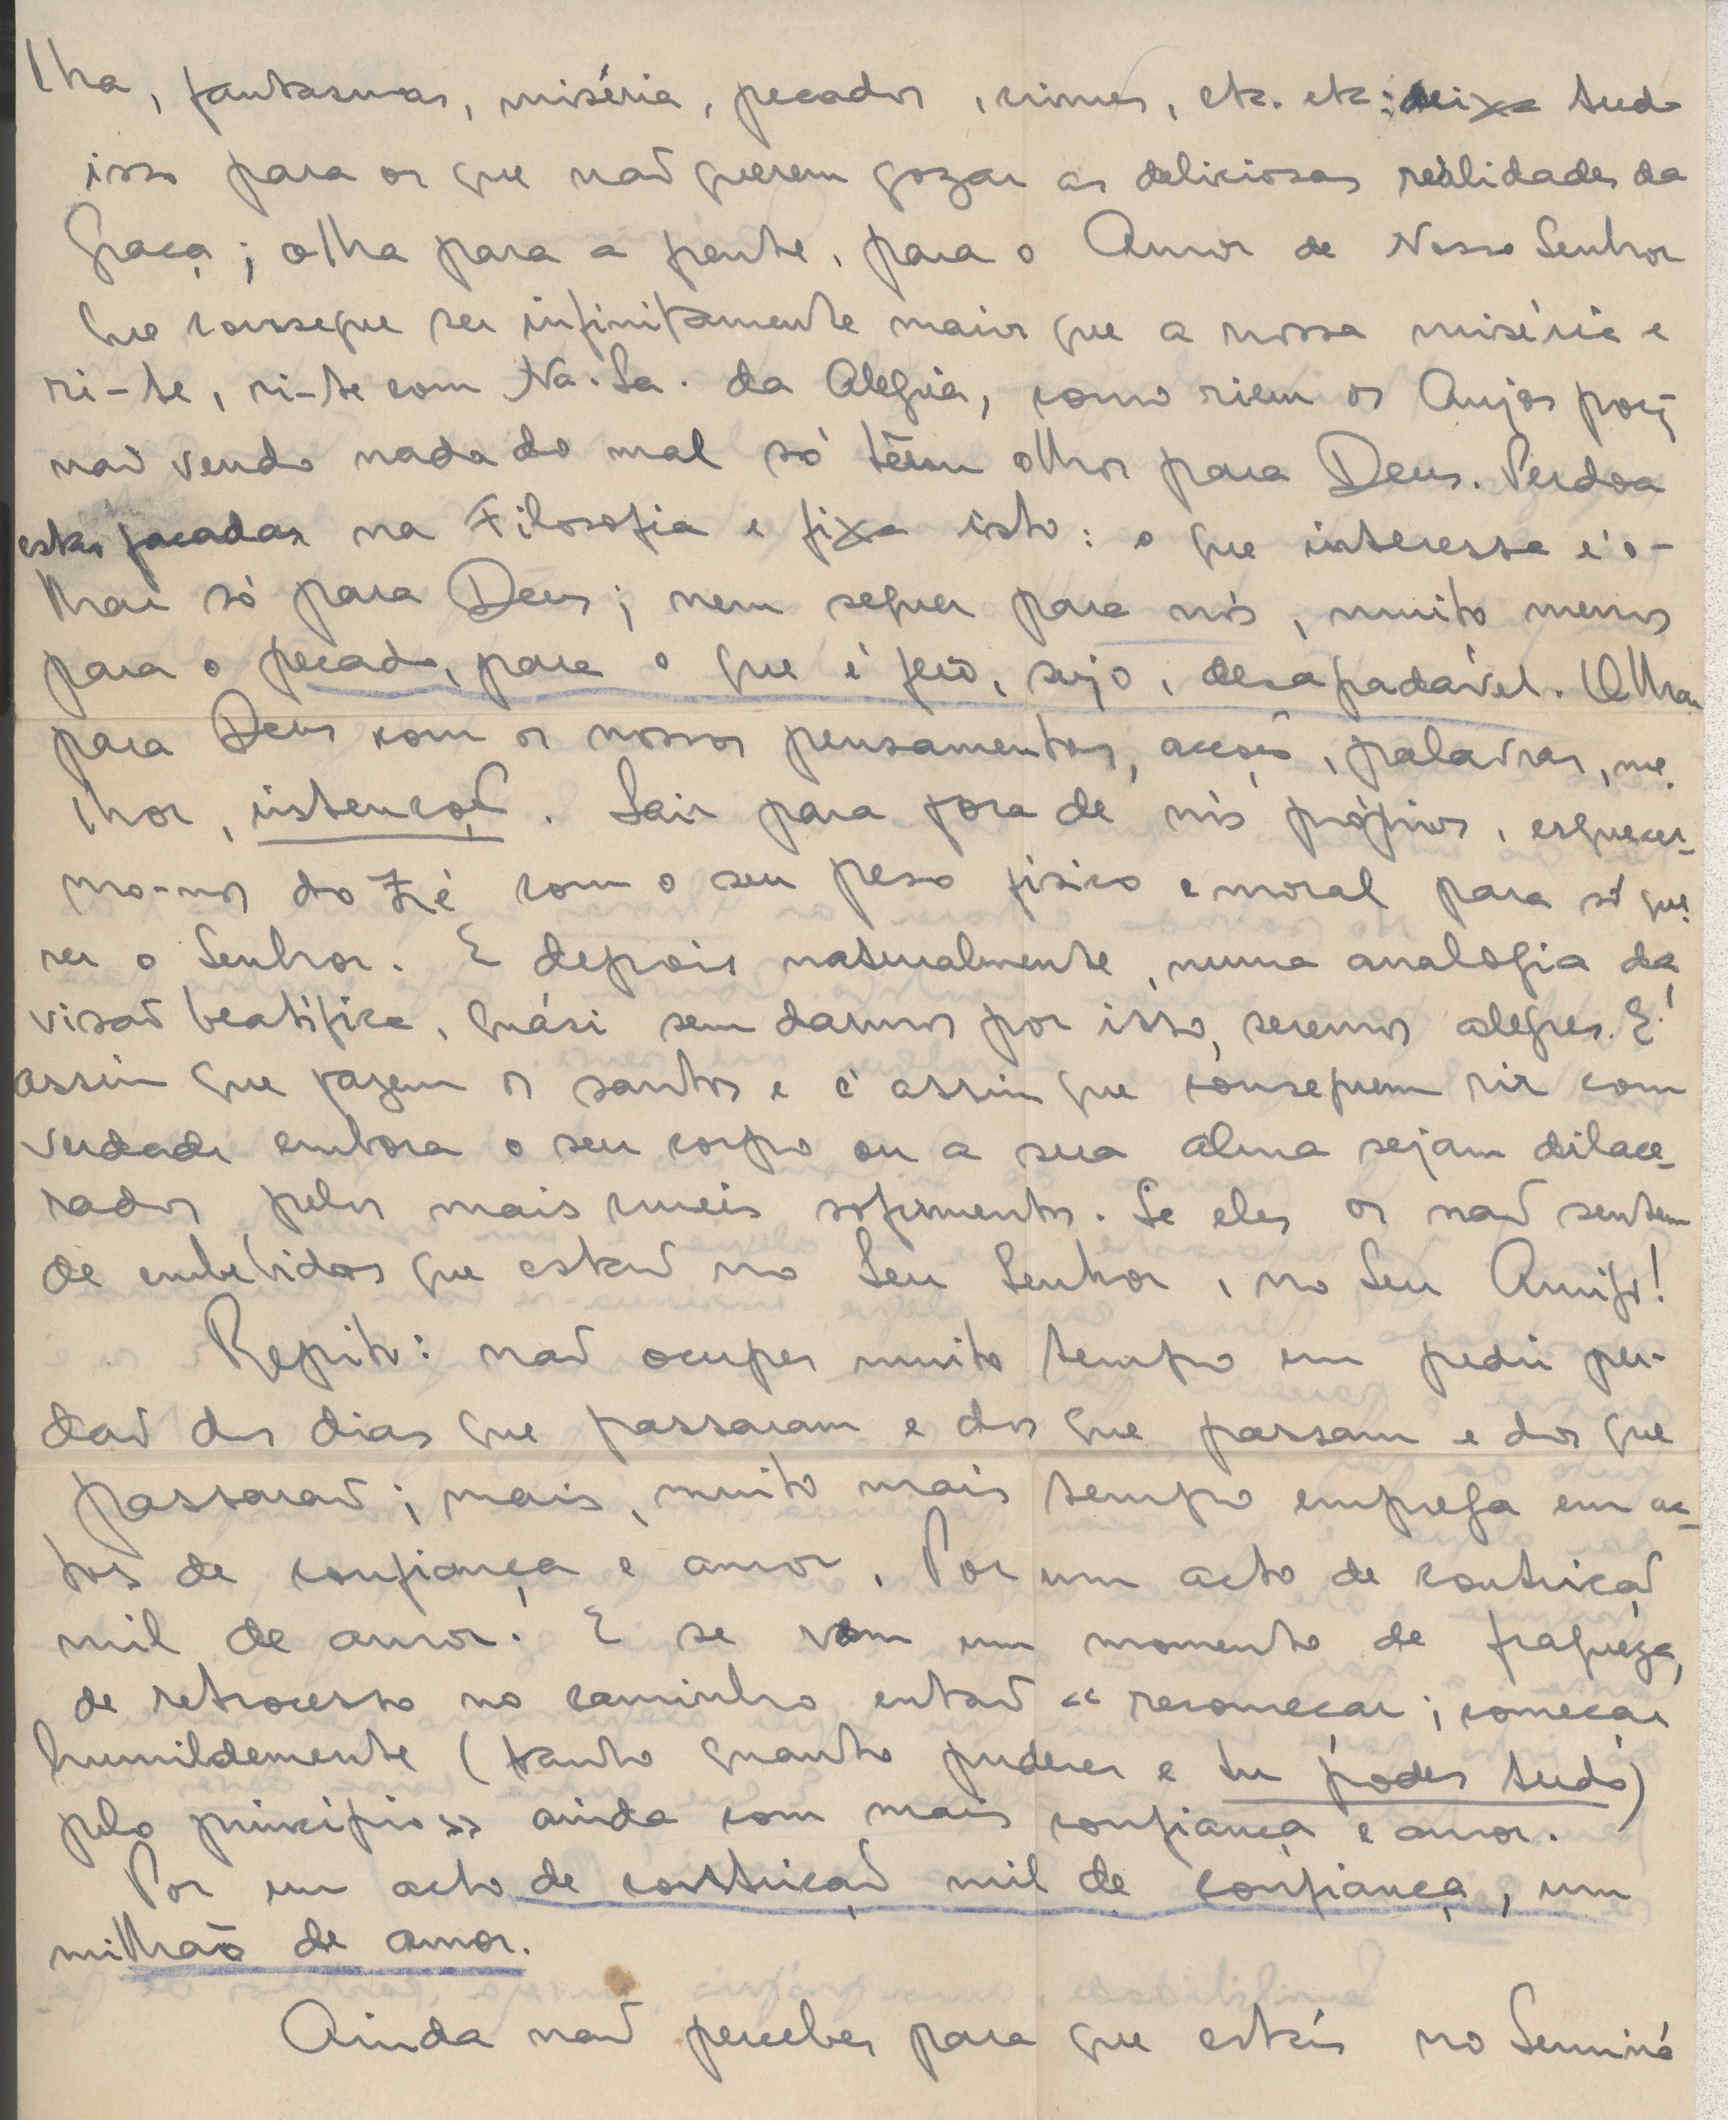 lha, fantasmas, miséria, pecados, crimes, etc. etc.; deixa tudo
isso para os que não querem gozar as deliciosas realidades da
Graça; olha para a frente, para o Amor de Nosso Senhor
que consegue ser infinitamente maior que a nossa miséria e
ri-te, ri-te com Na. Sa. da Alegria, como riem os Anjos porq̃
não vendo nada do mal só têem olhos para Deus. Perdoa
estas facadas na Filosofia e fixa isto: o que interessa é o-
lhar só para Deus; nem sequer para nós, muito menos
para o pecado, para o que é feio, sujo, desagradável. Olhar
para Deus com os nossos pensamentos, acções, palavras, me-
lhor, intenção. Sair para fora de nós próprios, esquecer-
mo-nos do Zé com o seu peso fisico e moral para só que-
rer o Senhor. E depois naturalmente, numa analogia da
visão beatífica, quási sem darmos por isso, seremos alegres. É
assim que fazem os santos e é assim que conseguem rir com
verdade embora o seu corpo ou a sua alma sejam dilace-
rados pelos mais crueis sofrimentos. Se eles os não sentem
de embebidos que estão no Seu Senhor, no Seu Amigo!
Repito: não ocupes muito tempo em pedir per-
dão dos dias que passaram e dos que passam e dos que
passarão; mais, muito mais tempo emprega em ac-
tos de confiança e amor. Por um acto de contrição
mil de amor. E se vem um momento de fraqueza,
de retrocesso no caminho então « recomeçar; começar
humildemente (tanto quanto puderes e tu podes tudo)
pelo princípio» ainda com mais confiança e amor.
Por um acto de contrição mil de confiança, um
milhão de amor.
Ainda não percebes para que estás no Seminá